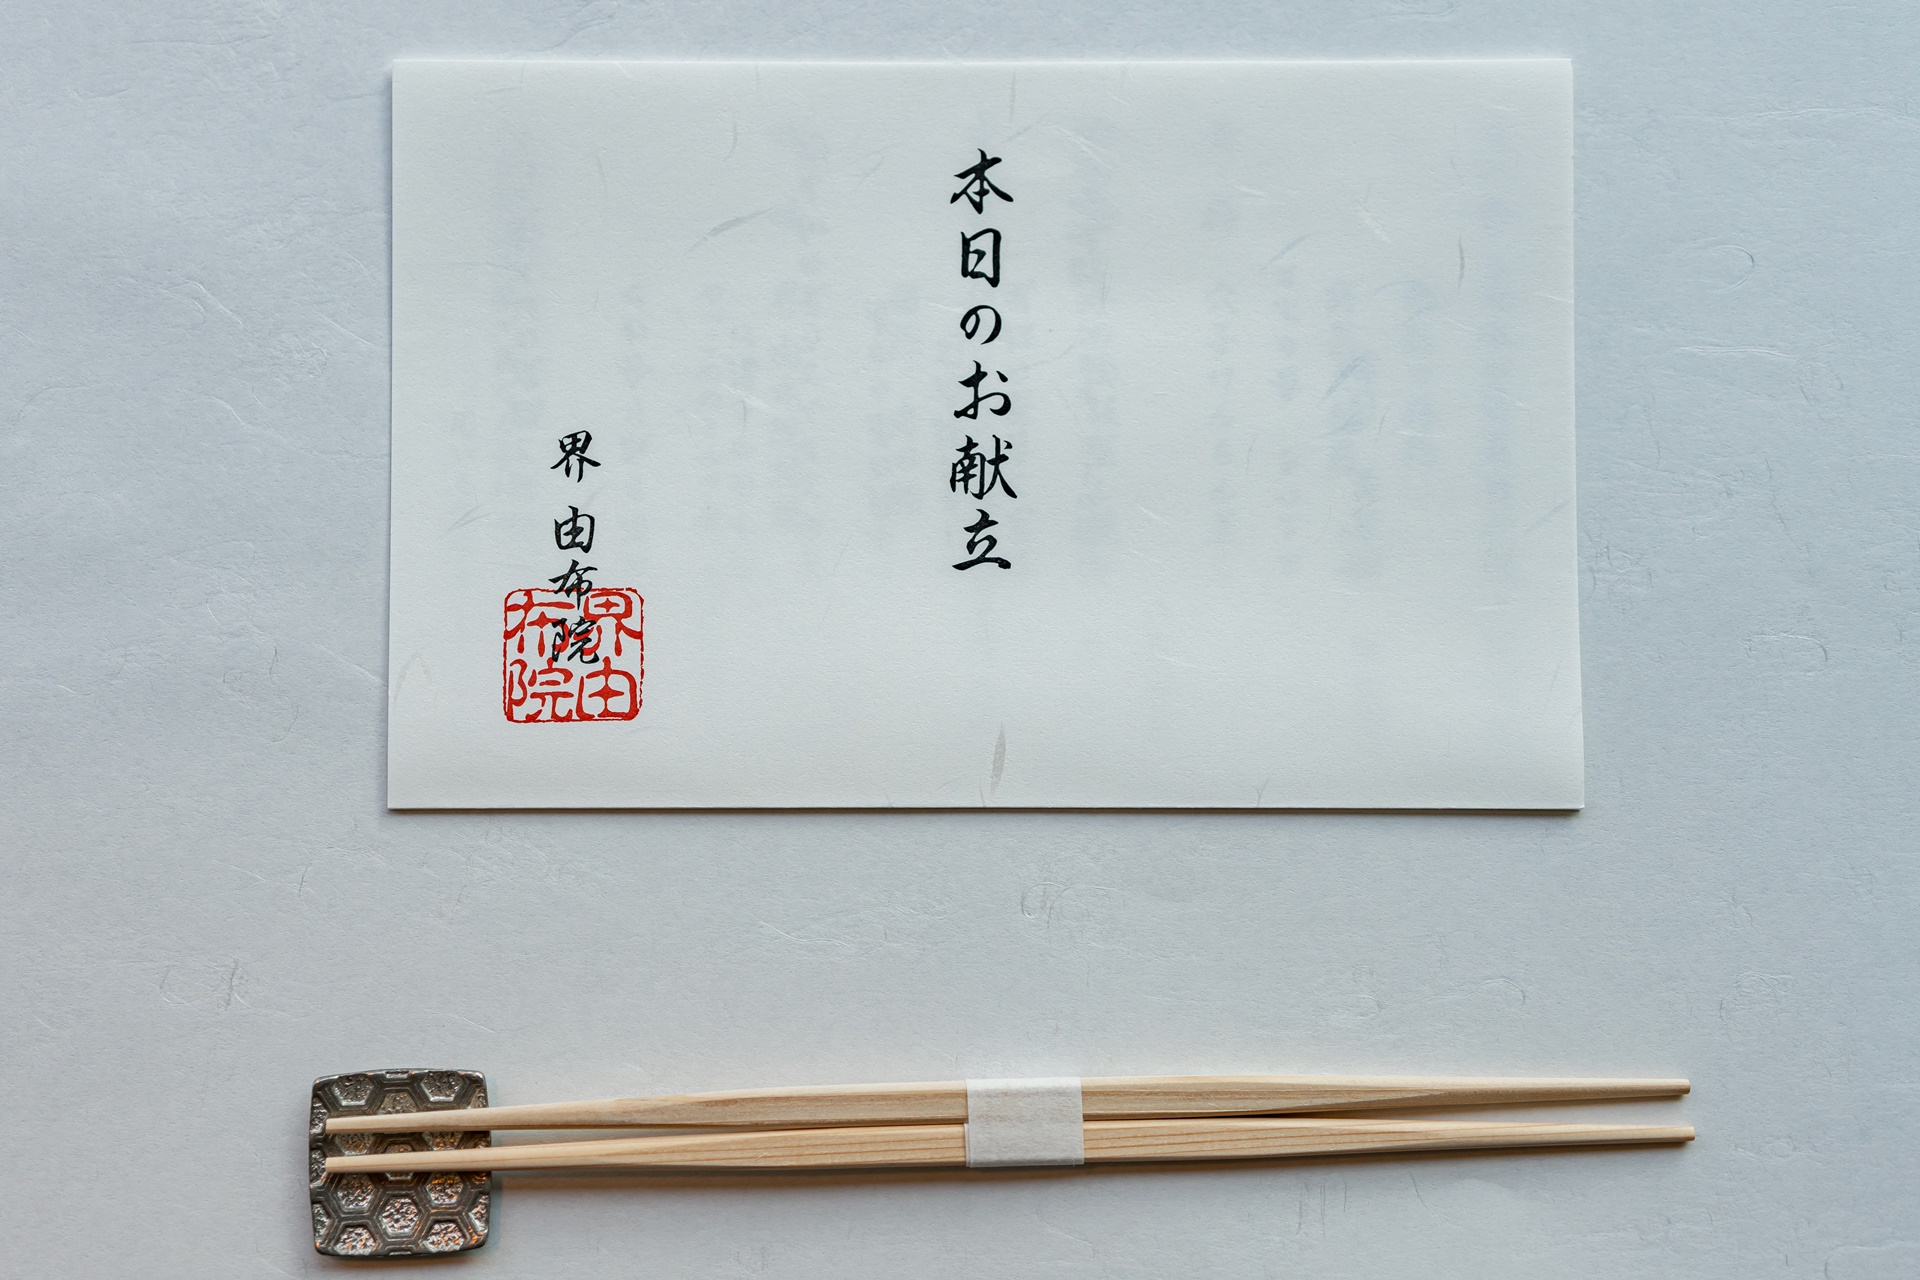 本日のお献立
界 由布院
界由布院